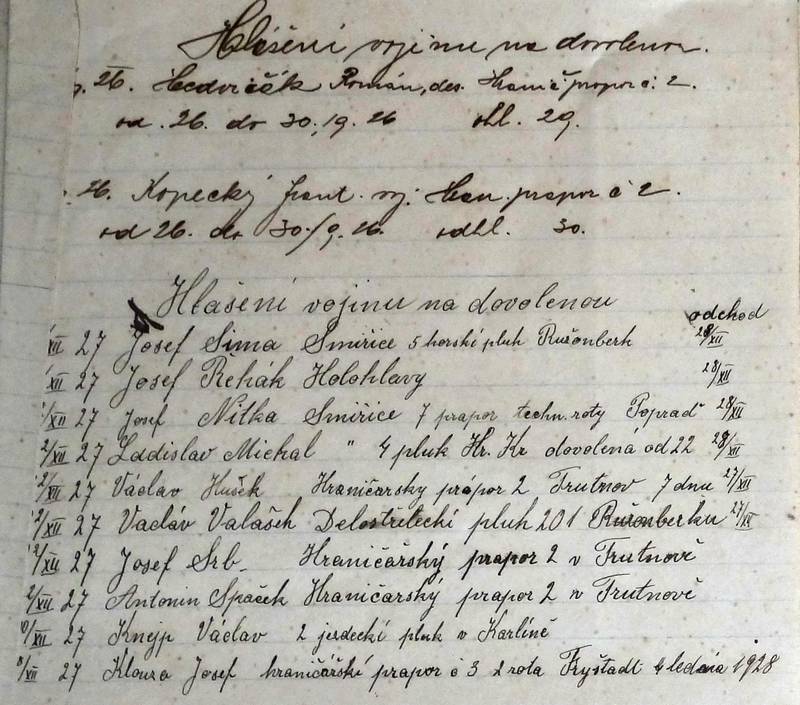 Hlášení vojínu na dovolenou.
26. Hedvičák Román, des. Hranič. prapor č. 2.
od. 26. do 30./9. 26 ohl. 29.
26. Kopecký frant. voj. Hran. prapor č 2.
od 26. do 30./9. 26. odhl. 30.
Hlašení vojinu na dovolenou odchod
/XII 27 Josef Sima Smiřice 5 horski plukRužonberk 28/XII
/XII 27 Josef Řehák Holohlavy 28/XII
/XII 27 Josef Nitka Smiřice 7 prapor techn. roty Poprad 28/XII
2/XII 27 Ladislav Michal " 4 pluk Hr. Kr dovolená od 22 28/XII
2/XII 27 Václav Hušek Hraničarsky prápor 2 Trutnov 7 dnu 27/XII
2/XII 27 Vacláv Valašek Delostřelecki pluk 201 Ružonberku 27/XII
2/XII 27 Josef Srb. Hraničářský prapor 2 v Trutnově
2/XII 27 Antonin Spaček Hraničarský prapor 2 v Trutnově
/XII 27 Knejp Václav 2 jezdecki pluk v Karlíně
/XII 27 Klouza Josef hraničářski prapor č 3 2 rota Fryštadt 4 ledna 1928